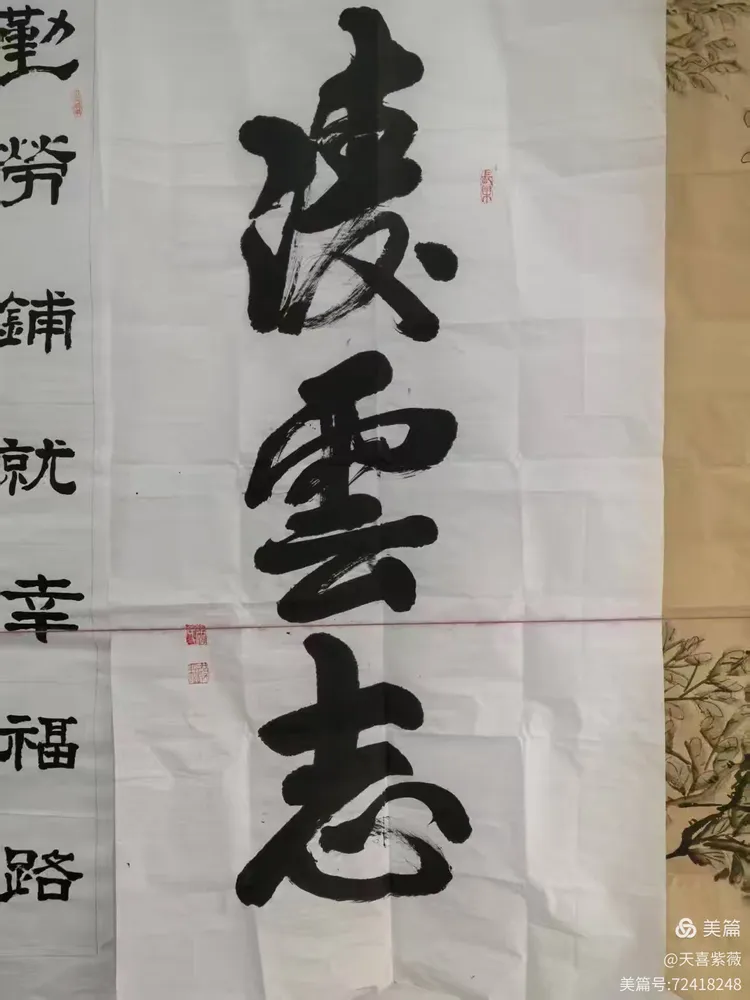 凌雲志
勤勞鋪就幸福路
美篇
@天喜紫薇
美篇号:72418248